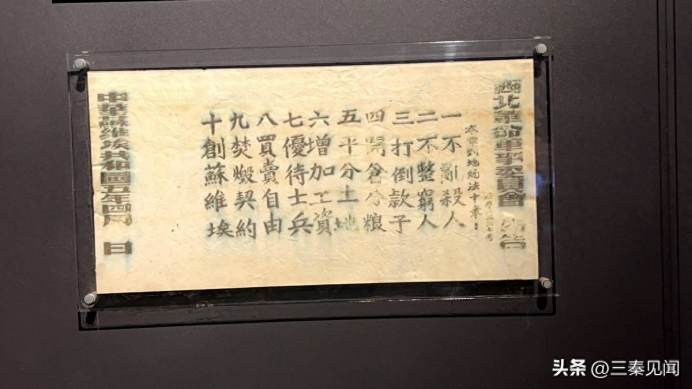 西北革命軍事委員會 佈告
本軍到地約法十章：
一不亂殺人
二不整窮人
三打倒款子
四開倉分粮
五平分土地
六增加工資
七優待士兵
八買賣自由
九焚燬契約
十創蘇維埃
中華蘇維埃共和國五年四月 日
头条 @三秦见闻